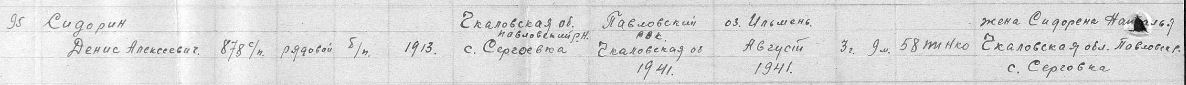 95 Сидорин Чкаловская об. Павловский оз. Ильмень. жена Сидорена Наталья
Павловский р.н. РВК.
Денис Алексеевич. 878 с/п. рядовой б/п. 1913. с. Сергеевка Чкаловская об Август 3г. 9м. 58 тм НКО Чкаловская обл. Павловск р.
1941. 1941. с. Серговка